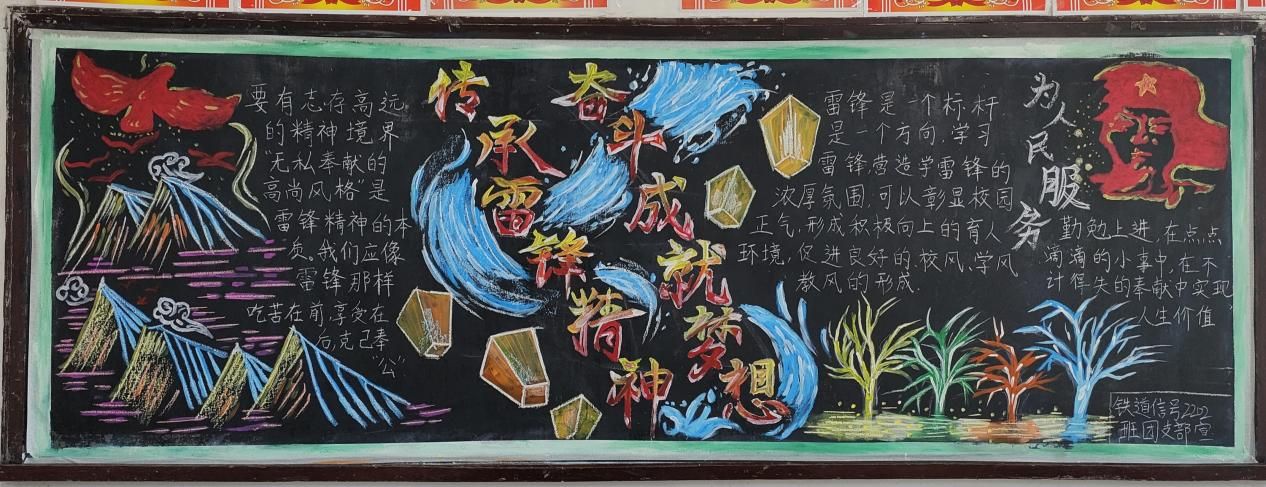 要有志存高远
的精神境界
“无私奉献的
高尚风格”是
雷锋精神的本
质。我们应像
雷锋那样
吃苦在前,享受在
后,克己奉
“公”
传承雷锋精神
奋斗成就梦想
雷锋是一个标杆
是一个方向,学习
雷锋,营造学雷锋的
浓厚氛围,可以彰显校园
正气,形成积极向上的育人
环境,促进良好的校风,学风
教风的形成.
为人民服务
勤勉上进,在点点
滴滴的小事中,在不
计得失的奉献中实现
人生价值
铁道信号2202
班团支部宣